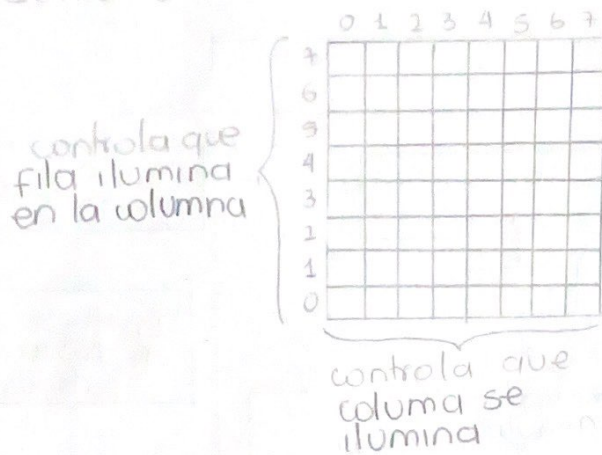 0 1 2 3 4 5 6 7
7
6
5
4
3
2
1
0
controla que
fila ilumina
en la columna
controla que
columa se
ilumina